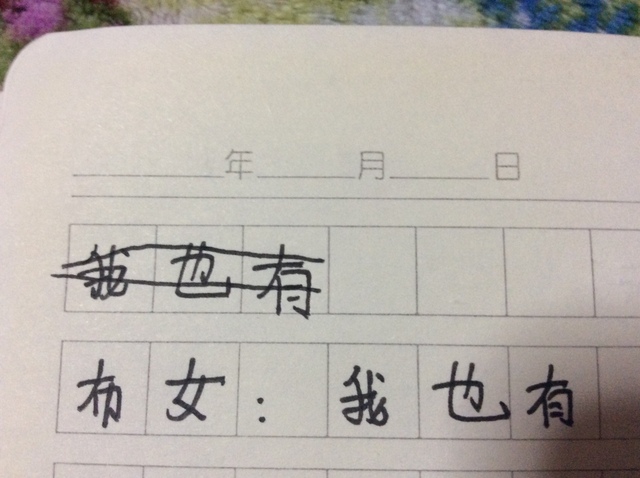 年 月 日
我也有
布女：我也有